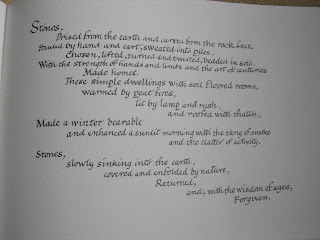 Stones,
Prised from the earth and carved from the rock face,
Hauled by hand and cart, sweated into piles.
Chosen, lifted, turned and twisted, bedded in soil.
With the strength of hands and limbs and the art of centuries
Made homes.
These simple dwellings with soil floored rooms,
warmed by peat fires,
lit by lamp and rush,
and roofed with thatch,
Made a winter bearable
and enhanced a sunlit morning with the tang of smoke
and the clatter of activity.
Stones,
slowly sinking into the earth,
covered and enfolded by nature,
Returned,
and, with the wisdom of ages,
Forgiven.